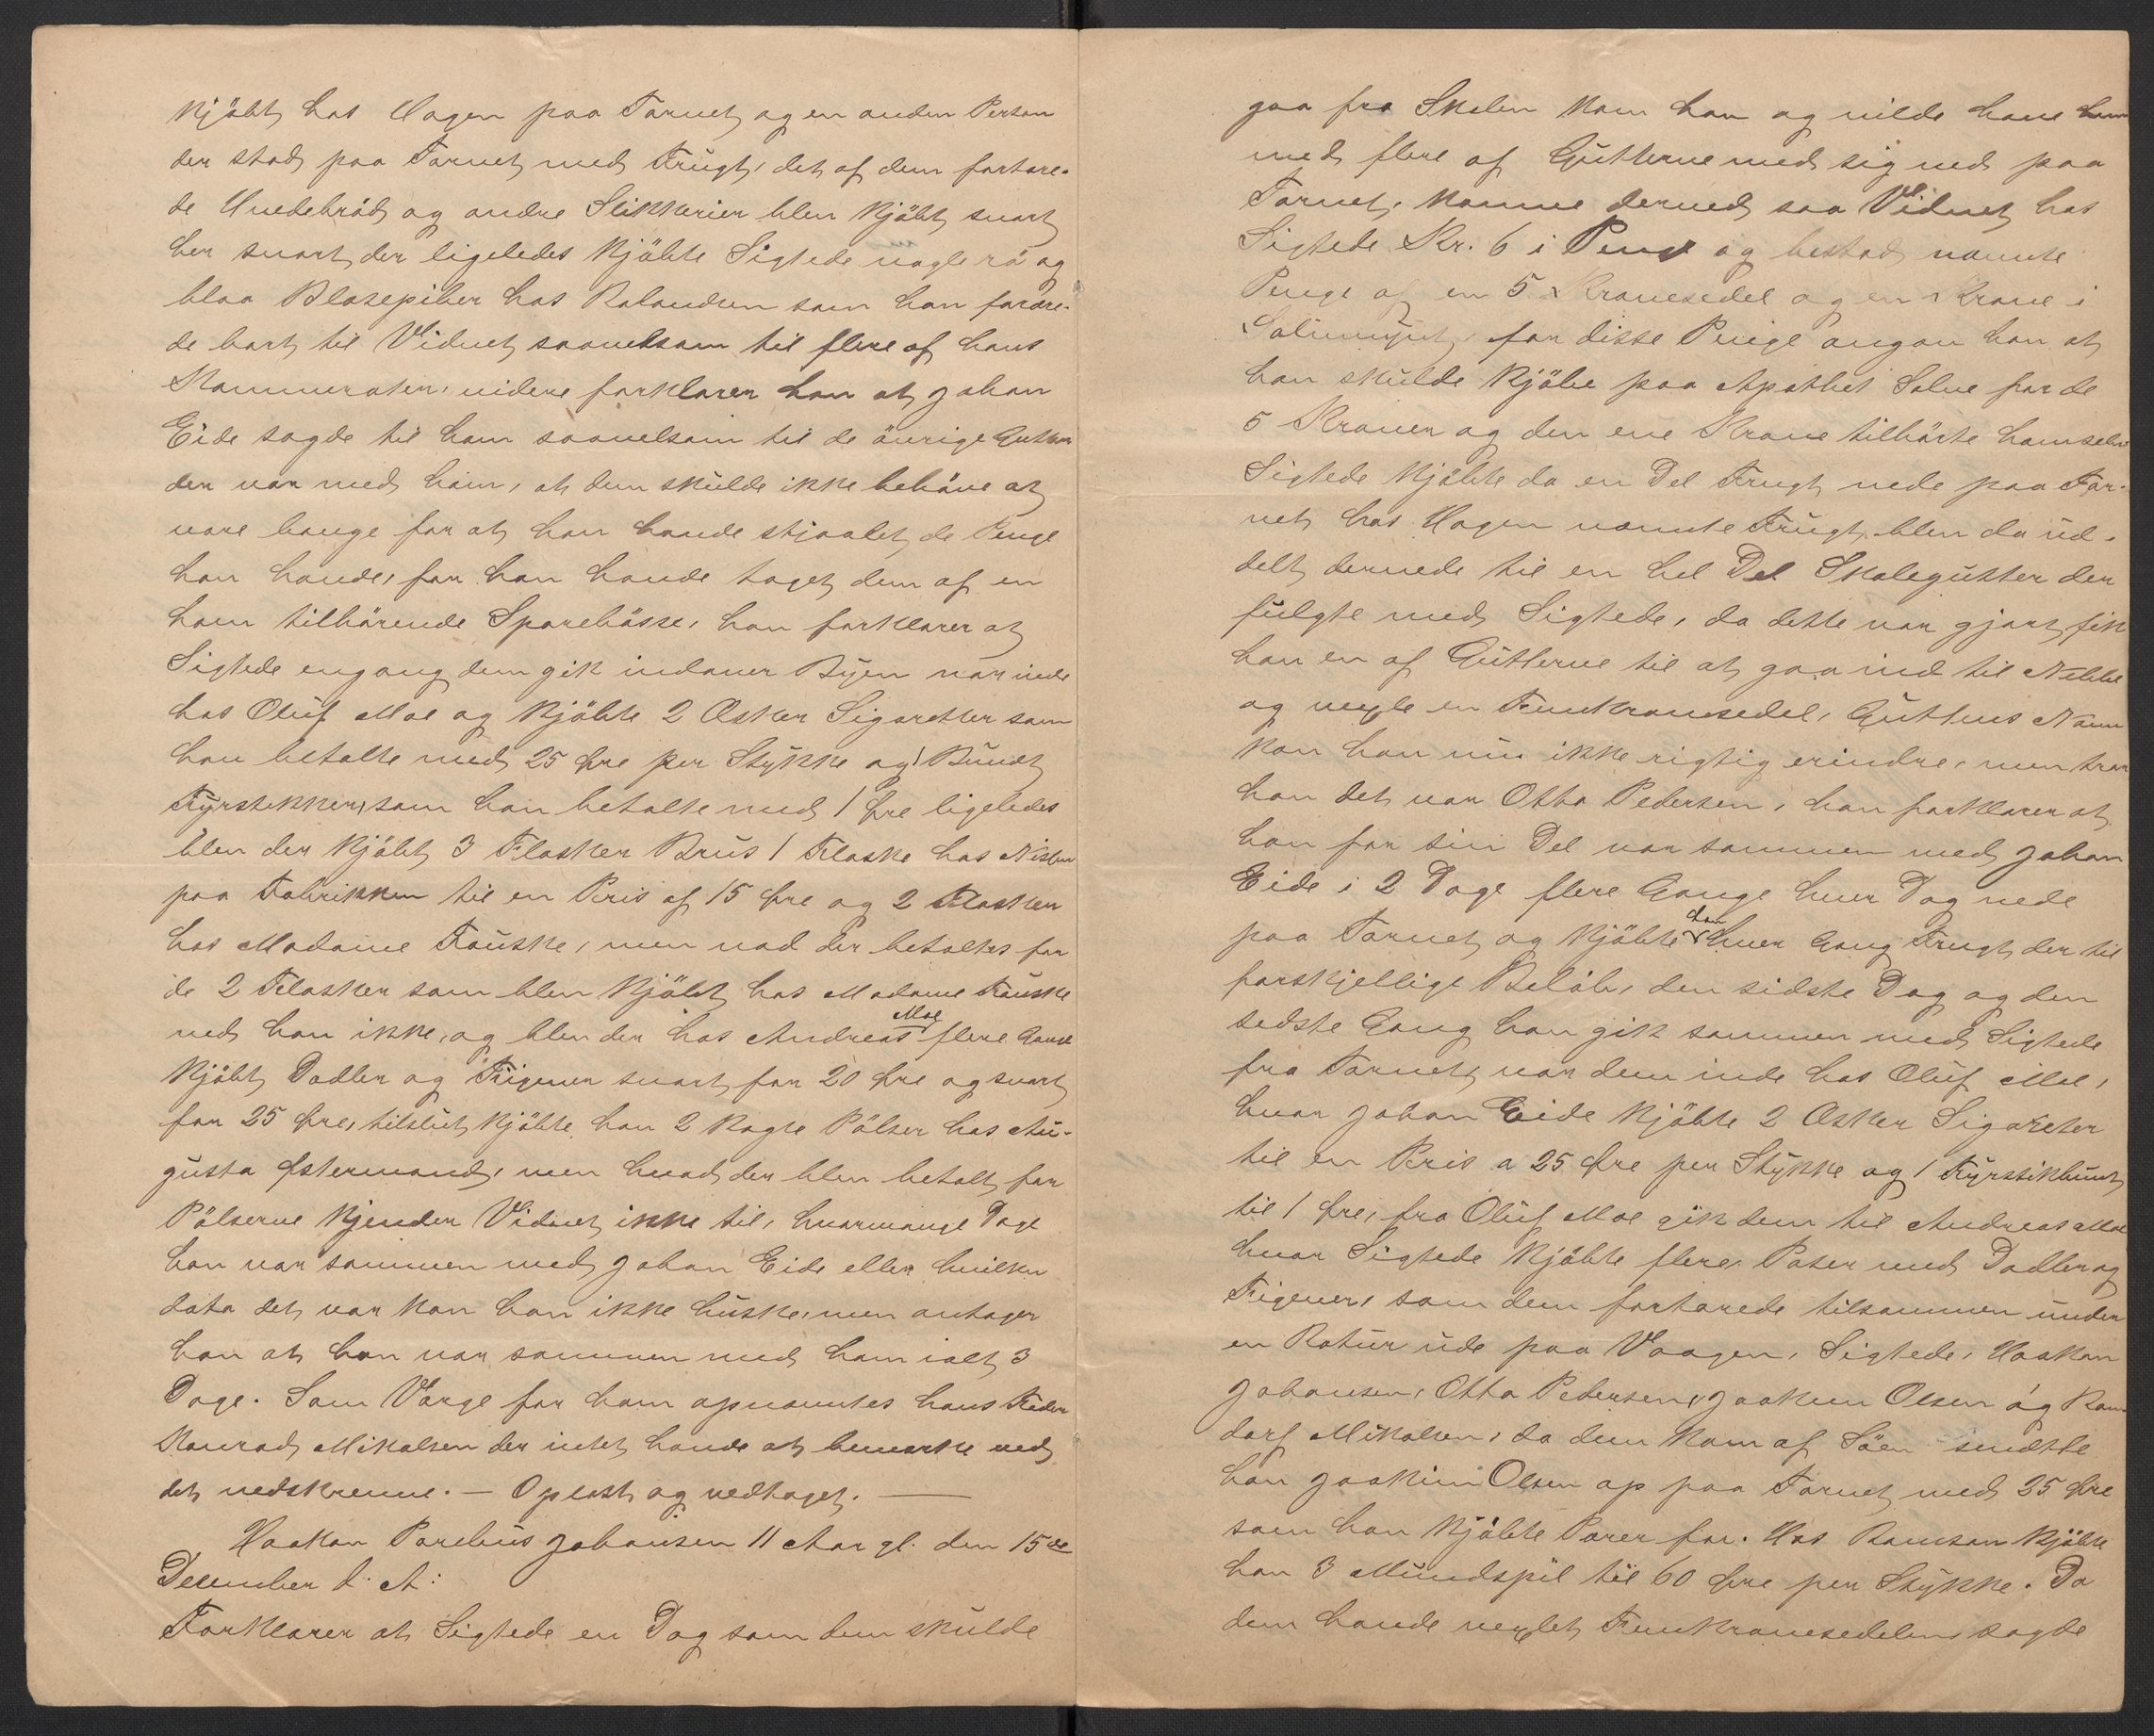 Kjöbt hos Hagen paa Torvet og en anden Person
der stod paa Torvet med Frugt, det af dem fortære-
de Hvedebröd og andre Slikkerier blev Kjöbt snart
her snart der ligeledes Kjöbte Sigtede nogle rö og
blaa Blasepiber hos Rolandsen som han forære-
de bort til Vidnet saavelsom til flere af hans
Kammerater, videre forklarer han at Johan
Eide sagde til ham saavelsom til de övrige Gutter
der var med ham, at dem skulde ikke behöve at
være bange for at han havde stjaalet de Penge
han havde, for han havde taget dem af en
ham tilhörende Sparebösse, han forklarer at
Sigtede engang dem gik indover Byen var inde
hos Oluf Moe og Kjöbte 2 Æsker Sigaretter som
han betalte med 25 Øre per Stykke og 1 Bundt
Fyrstikker, som han betalte med 1 Øre ligeledes
blev der Kjöbt 3 Flasker Brus 1 Flaske hos Nielsen
paa Fabrikken til en Pris af 15 Øre og 2 Flasker
hos Madame Fauske, men vad der betaltes for
de 2 Flasker som blev Kjöbt hos Madame Fauske
ved han ikke, og blev der hos Andreas Moe flere Gange
Kjöbt Dadler og Figener snart for 20 Øre og snart
for 25 Øre, tilslut Kjöbte han 2 Kogte Pölser hos Au-
gusta Østermand, men hvad der blev betalt for
Pölserne Kjender Vidnet ikke til, hvormange Dage
han var sammen med Johan Eide eller hvilken
dato det var kan han ikke huske, men antager
han at han var sammen med ham ialt 3
Dage. Som Værge for ham opnævntes hans Fader
Konrad Mikalsen der intet havde at bemærke ved
det nedskrevne. — Oplæst og vedtaget. —
Haakon Parelius Johansen 11 Aar gl. den 15de
December d: A:
Forklarer at Sigtede en Dag som dem skulde
gaa fra Skolen Kom han og vilde have ham
med flere af Gutterne med sig ned paa
Torvet, Komne derned saa Vidnet hos
Sigtede Kr. 6 i Penge og bestod nævnte
Penge af en 5 Kronesedel og en Krone i
Sölvmynt, for disse Penge angav han at
han skulde Kjöbe paa Apothet Salve for de
5 Kroner og den ene Krone tilhörte hamselv
Sigtede Kjöbte da en Del Frugt nede paa Tor-
vet hos Hagen nævnte Frugt blev da ud-
delt dernede til en hel Del Skolegutter der
fulgte med Sigtede, da dette var gjort fik
han en af Gutterne til at gaa ind til Nebbe
og vexle en Femkronesedel, Guttens Navn
kan han nu ikke rigtig erindre, men tror
han det var Otto Pedersen, han forklarer at
han for sin Del var sammen med Johan
Eide i 2 Dage flere Gange hver Dag nede
paa Torvet og Kjöbte han hver Gang Frugt der til
forskjellige Belöb, den sidste Dag og den
sidste Gang han gik sammen med Sigtede
fra Torvet, var dem inde hos Oluf Moe,
hvor Johan Eide Kjöbte 2 Æsker Sigareter
til en Pris a 25 Øre per Stykke og 1 Fyrstikbundt
til 1 Øre, fra Oluf Moe gik dem til Andreas Moe
hvor Sigtede Kjöbte flere Poser med Dadler og
Figener, som dem fortærede tilsammen under
en Rotur ude paa Vaagen, Sigtede, Haakon
Johansen, Otto Pedersen, Joakim Olsen og
dorf Mikalsen, da dem Kom af Söen sendtte
han Joakim Olsen op paa Torvet med 25 Øre
som han Kjöbte Pærer for. Hos Kjöbte
han 3 Mundspil til 60 Øre per Stykke. Da
dem havde vexlet Femkronesedelen sagde